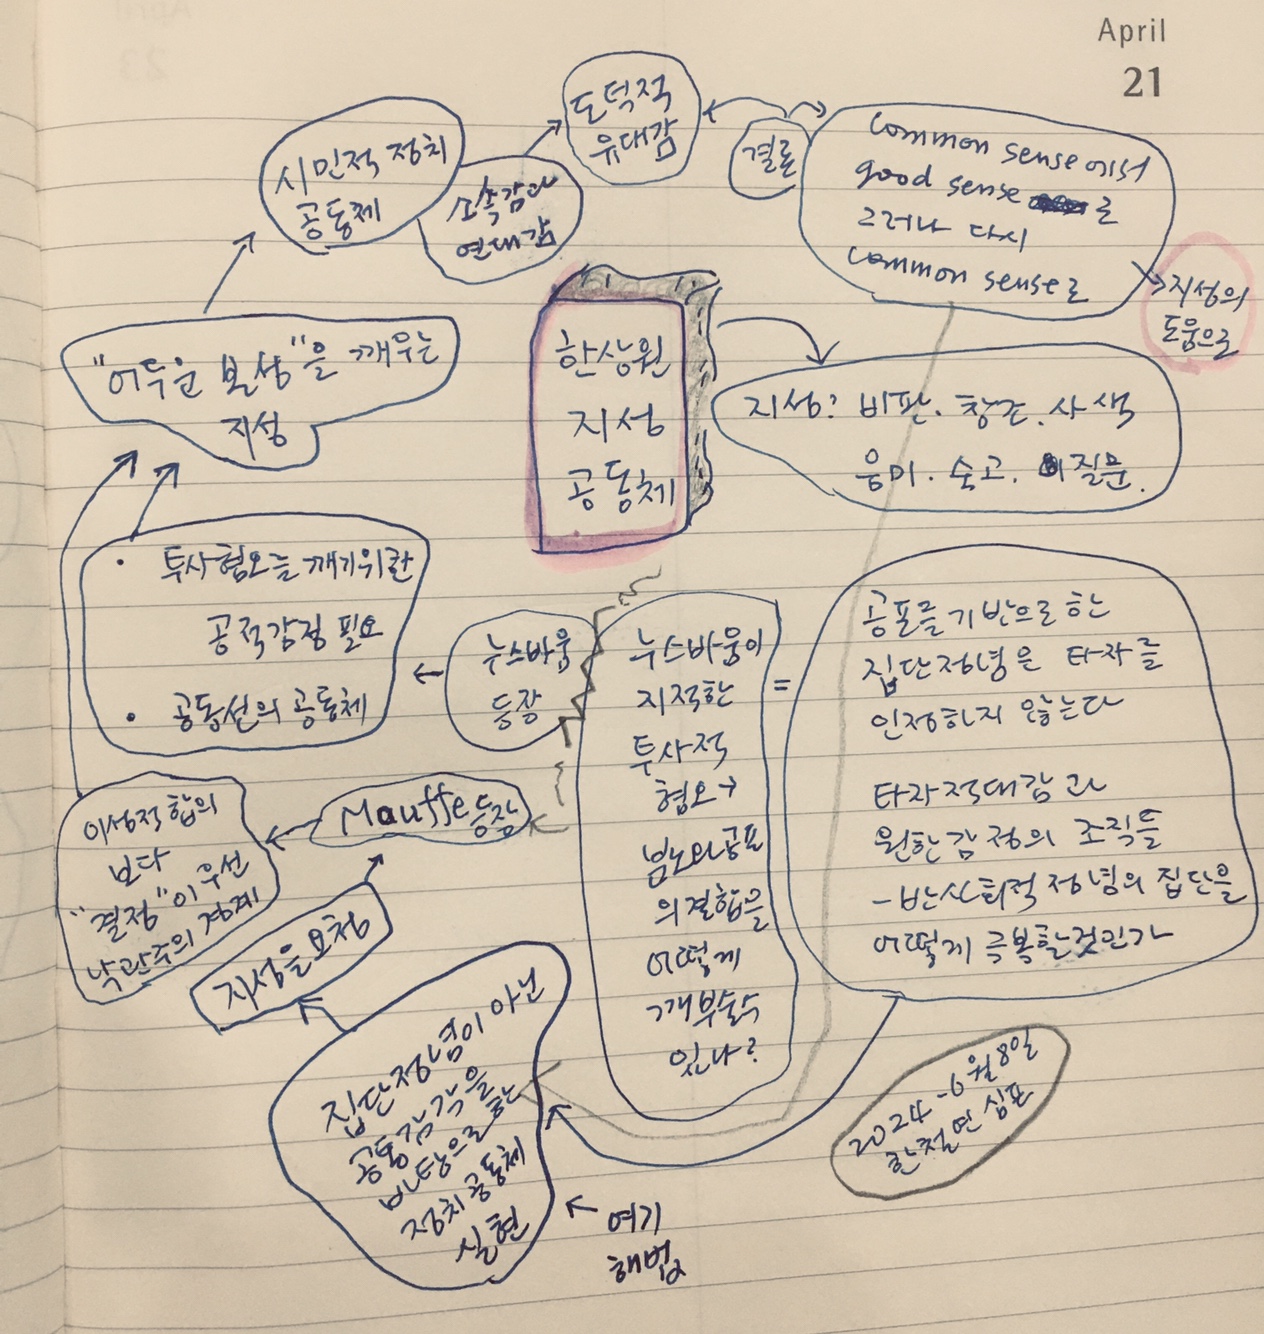 April
21
도덕적
유대감
결론
common sense에서
good sense 로
그러나 다시
common sense로
지성의
도움으로
시민적 정치
공동체
소속감과
연대감
"어두운 본성"을 깨우는
지성
한상원
지성
공동체
지성: 비판. 창조. 사색
음미. 숙고. 질문.
• 투사혐오를 깨기위한
공적감정 필요
• 공동선의 공동체
누스바움
등장
누스바움이
지적한
투사적
혐오→
분노와공포
의 결합을
어떻게
깨부술수
있나?
=
공포를 기반으로 한
집단정념은 타자를
인정하지 않는다
타자적대감과
원한감정의 조직들
-반사회적 정념의 집단을
어떻게 극복할것인가
Mauffe 등장
이성적 합의
보다
"결정"이 우선
낙관주의 경계
지성을 요청
집단정념이 아닌
공통감각을
바탕으로 한
정치공동체
실현
여기
해법
2024-6월8일
한철연 심포